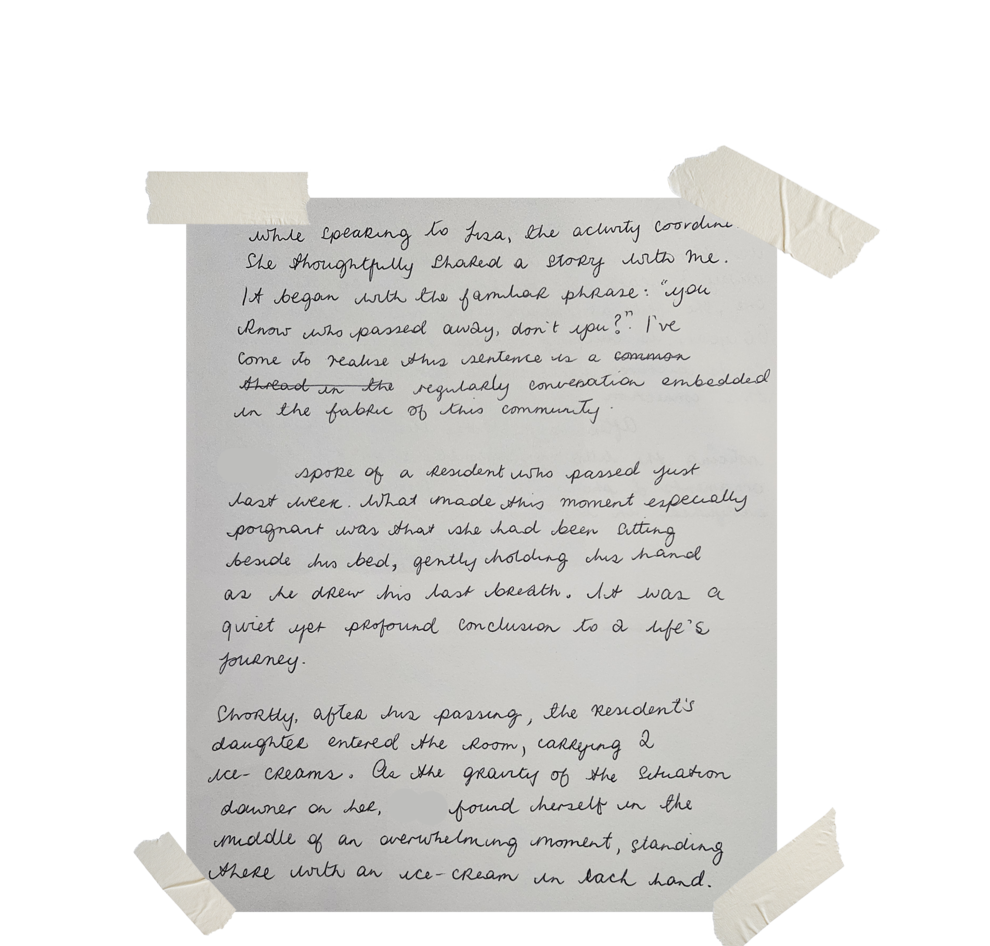 while speaking to Lisa, the activity coordin
She thoughtfully shared a story with me.
It began with the familiar phrase: "you
know who passed away, don't you?". I've
come to realise this sentence is a common
thread in the regularly conversation embedded
in the fabric of this community.
spoke of a resident who passed just
last week. What made this moment especially
poignant was that she had been sitting
beside his bed, gently holding his hand
as he drew his last breath. It was a
quiet yet profound conclusion to a life's
journey.
Shortly, after his passing, the resident's
daughter entered the room, carrying 2
ice-creams. As the gravity of the situation
downer on her, found herself in the
middle of an overwhelming moment, standing
there with an ice-cream in each hand.